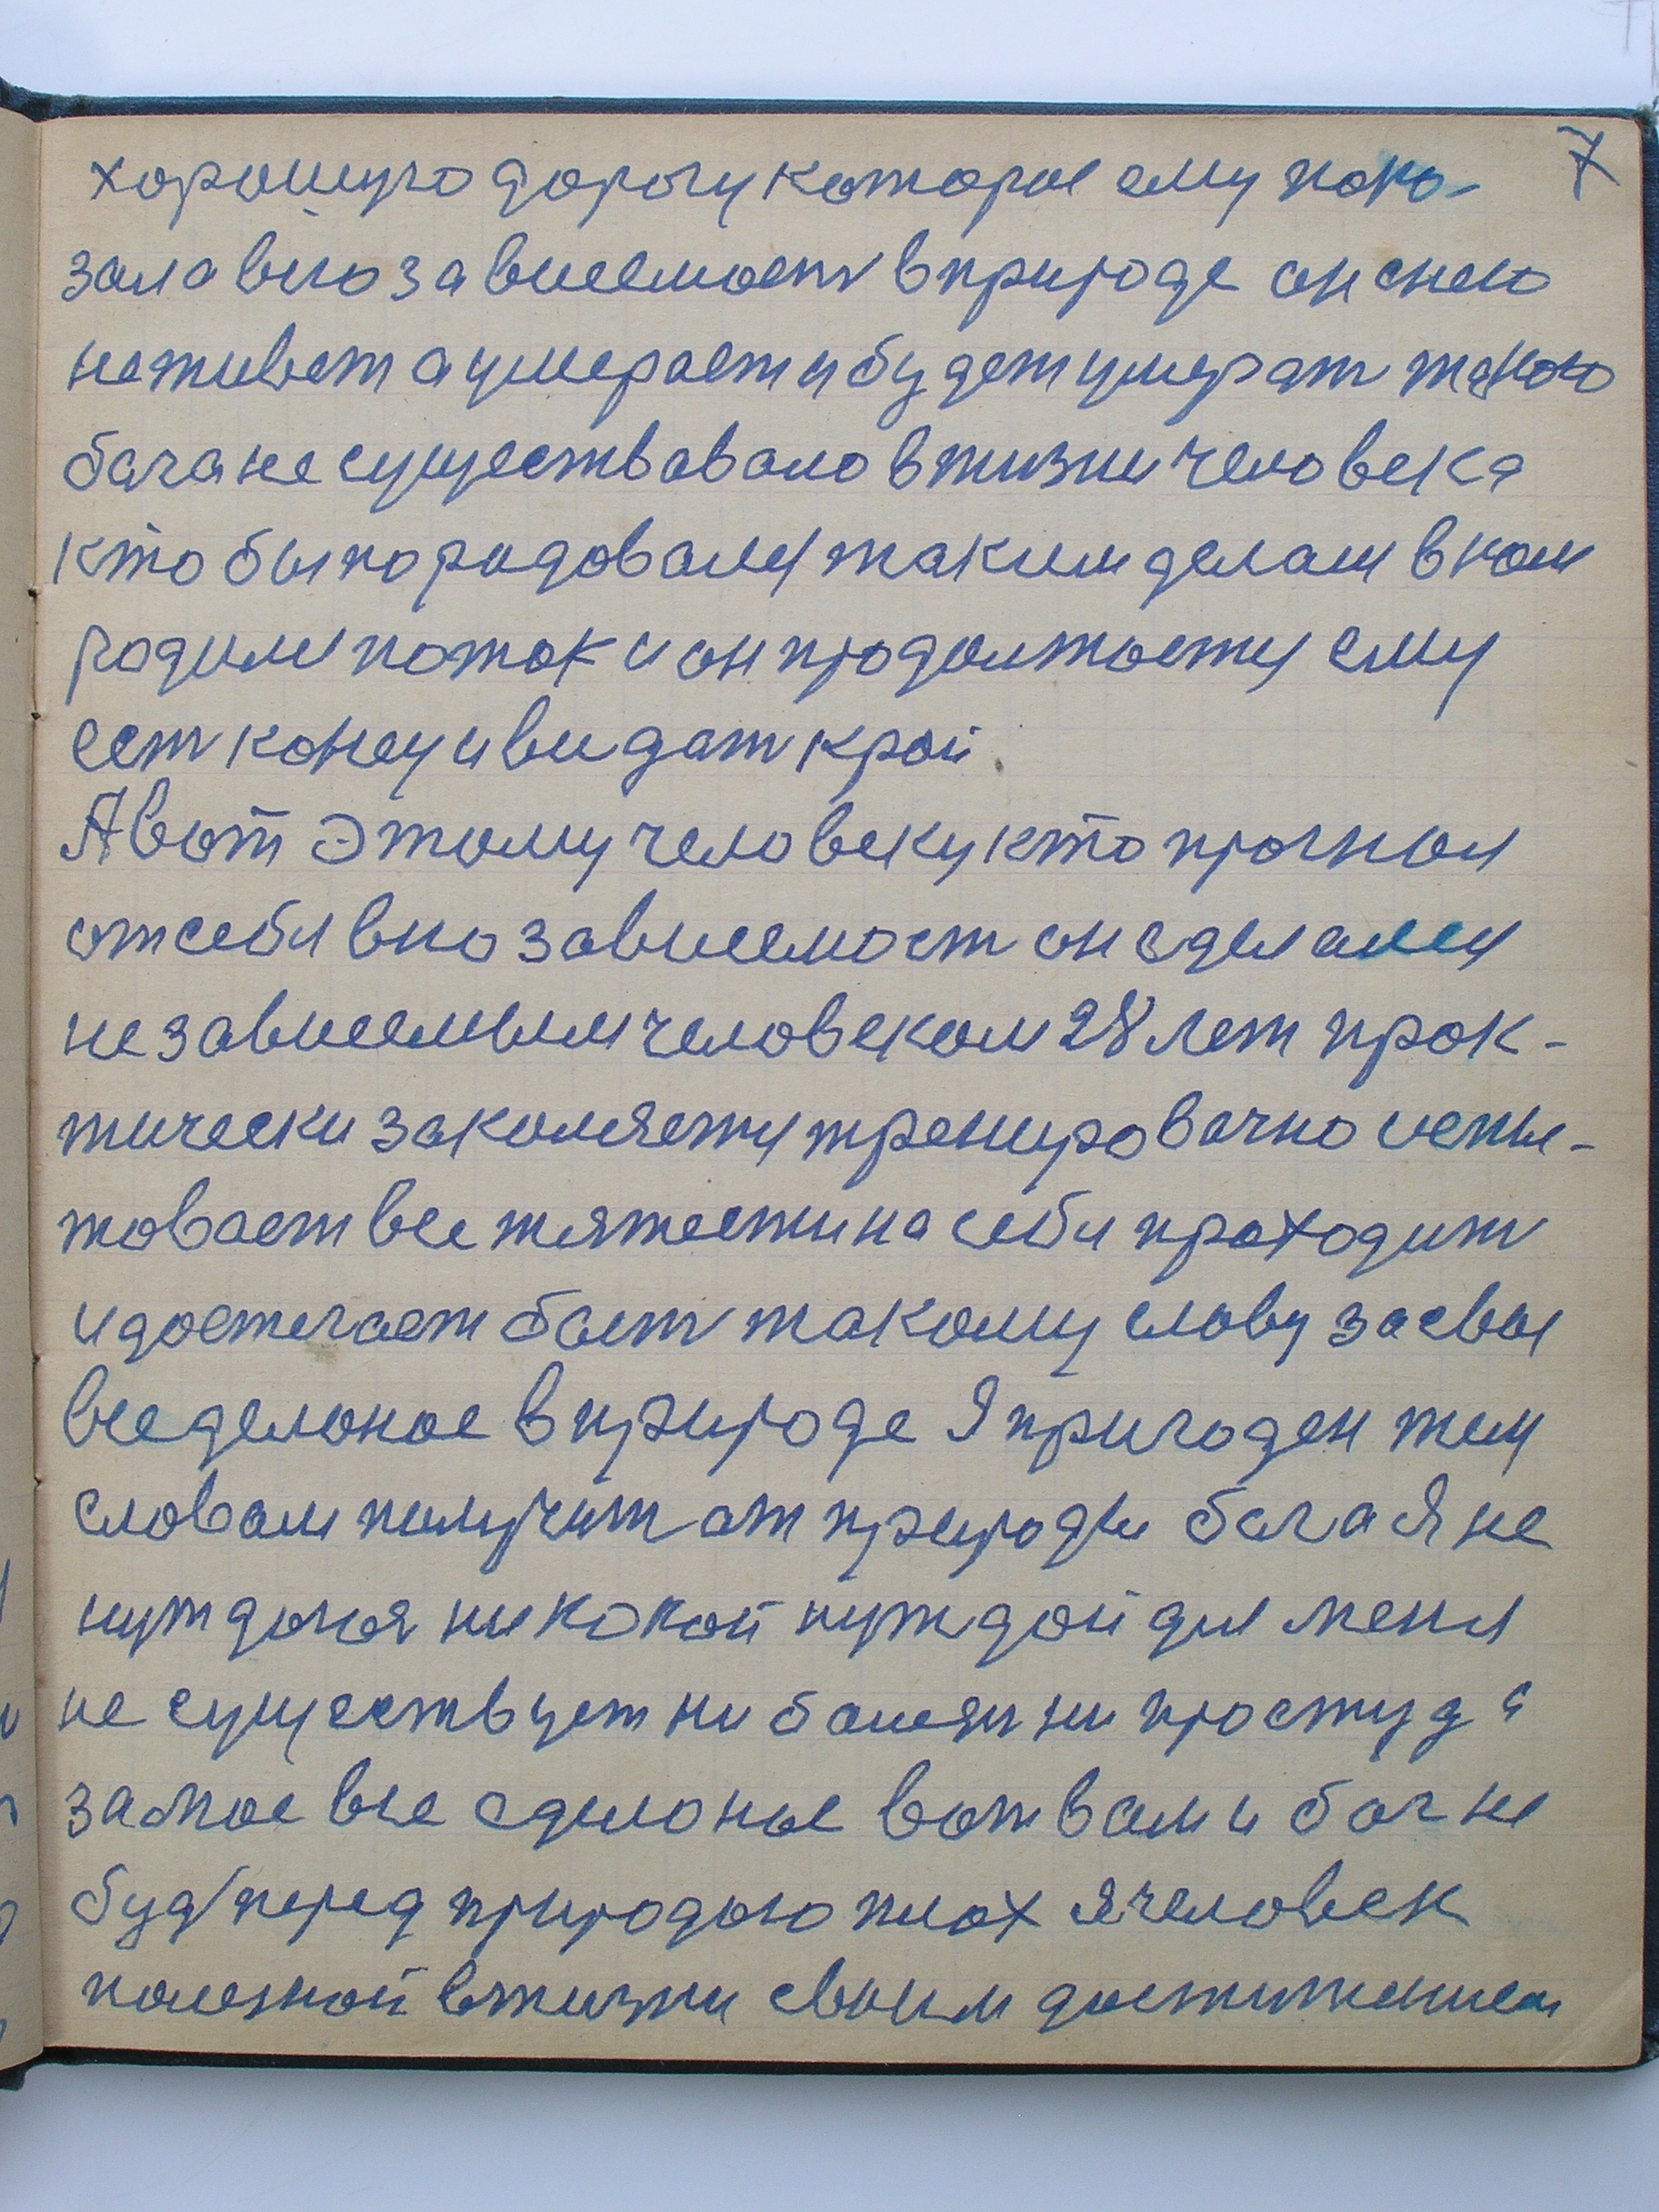 7
хорошую дорогу которое ему пока-
зала вню зависемость в природе он снею
не живет а умерает и будет умерать такою
бога не существавало в жизни человека
кто бы порадовался таким делам в ком
родился поток и он продолжается ему
есть конец и видать край.
А вот этому человеку кто прогнал
от себя вню зависемост он сделался
не зависемым человеком 28 лет прак-
тически закаляется тренировачно испы-
товает все тяжести на себя проходит
и достегает бость такому слову за свои
все делоное в природе Я пригоден тем
словам получить от природы бога Я не
нуждаюя ни какой нуждой для меня
не существует ни болези ни простуда
за мое все сделоные вот вам и бог не
буд перед природою плох я человек
полезной в жизни своим достижением